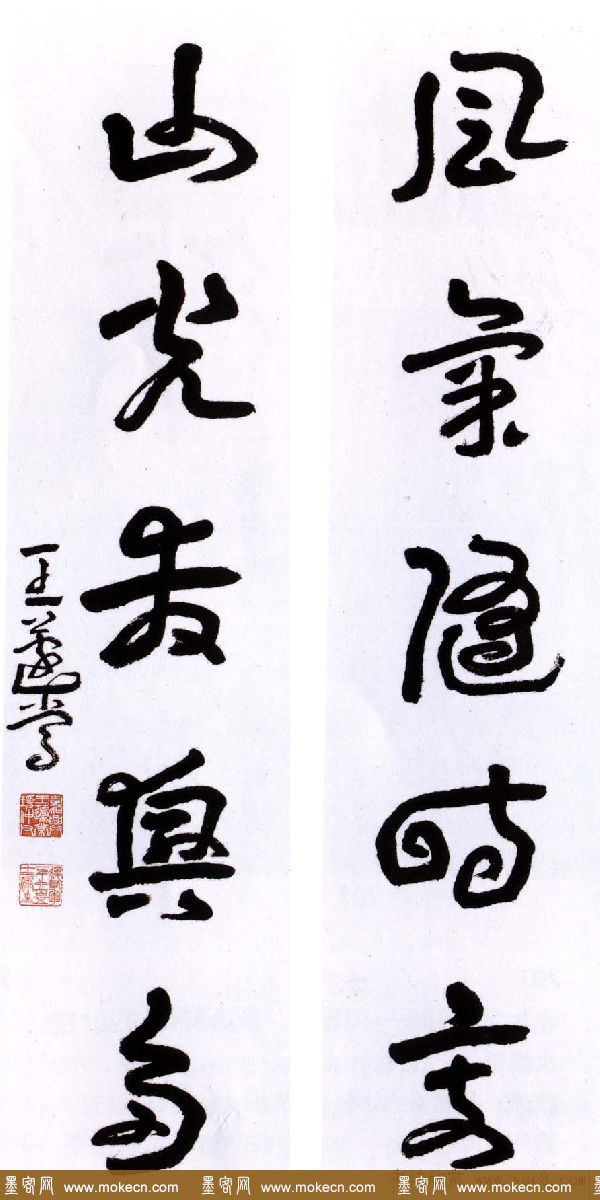 風氣隨時變
山光發興多
王蘧常
墨客网 www.mokecn.com 墨客网 www.mokecn.com 墨客网 www.mokecn.com 墨客网